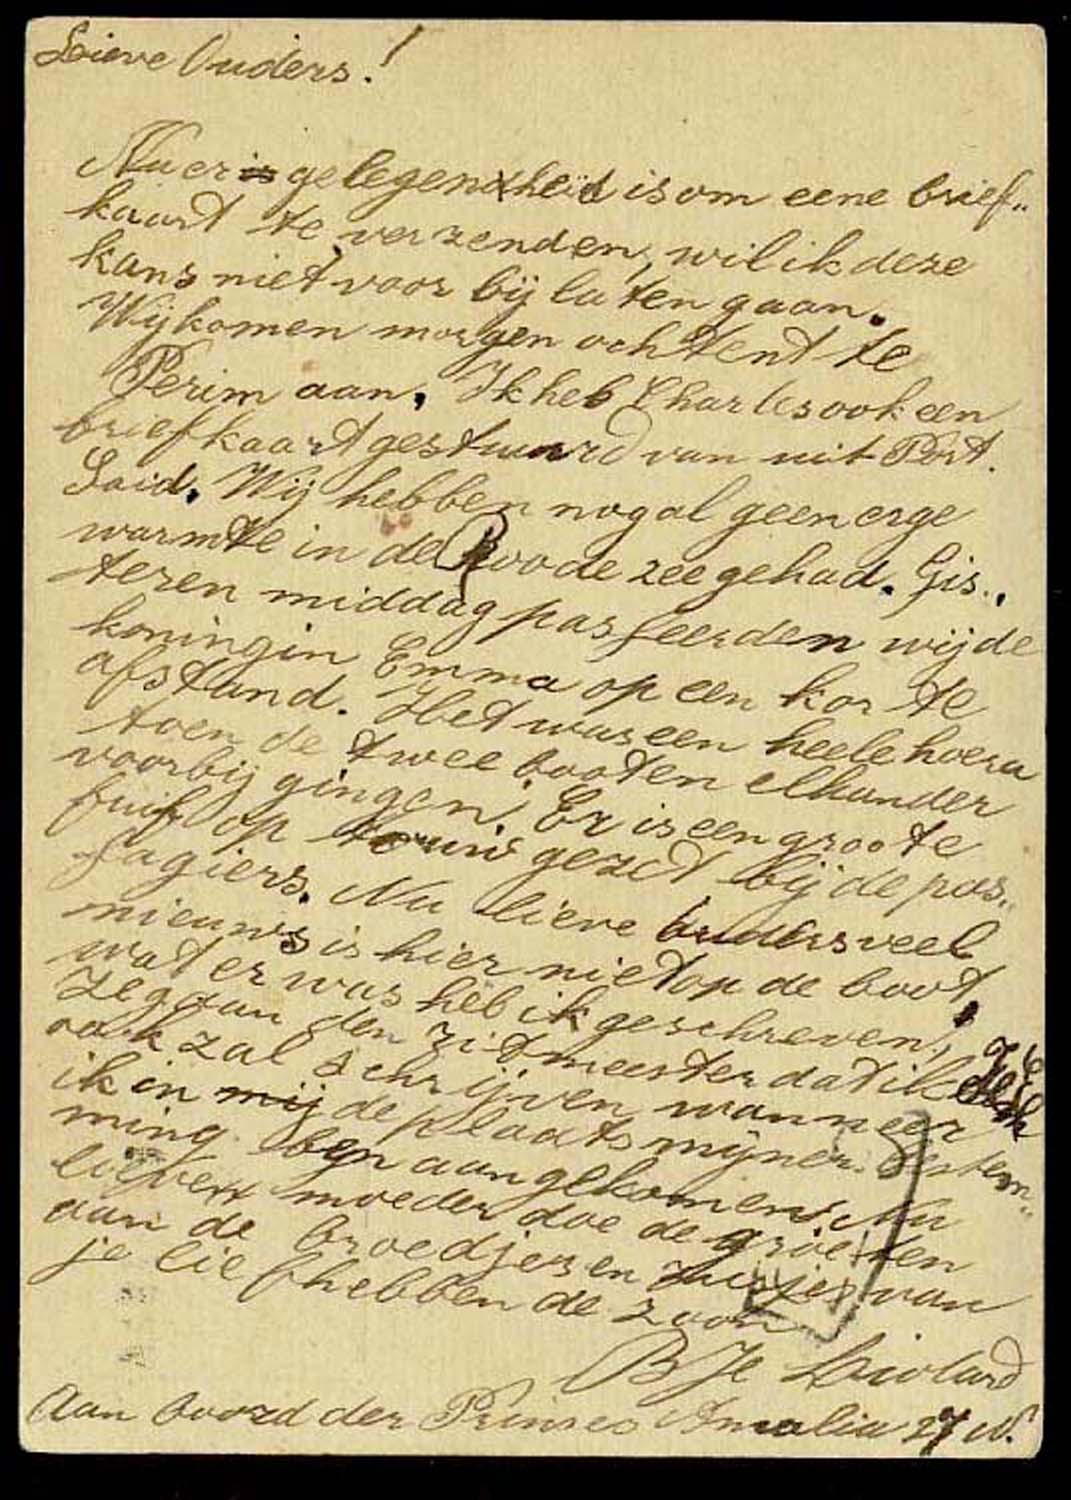 Lieve Ouders!
Nu er is gelegenheid is om eene brief„
kaart te verzenden, wil ik deze
kans niet voor bij laten gaan.
Wij komen morgen ochtent te
Perim aan. Ik heb Charles ook een
briefkaart gestuurd van uit Port.
Said. Wij hebben nogal geen erge
warmte in de Roode zee gehad. Gis„
teren middag passeerden wij de
koningin Emma op een korte
afstand. Het was een heele hoera
toen de twee booten elkander
voorbij gingen. Er is een groote
fuif op touw gezet bij de pas„
sagiers. Nu lieve ouders veel
nieuws is hier niet op de boot,
wat er was heb ik geschreven,
Zeg aan den zitmeester dat ik
ook zal schrijven wanneer
ik in mij de plaats mijner bestem„
ming ben aangekomen. Nu
lieve moeder doe de groeten
aan de broedjes en zusjes van
je liefhebben de zoon
B Je
Aan boord der Prinses Amalia 27 N.